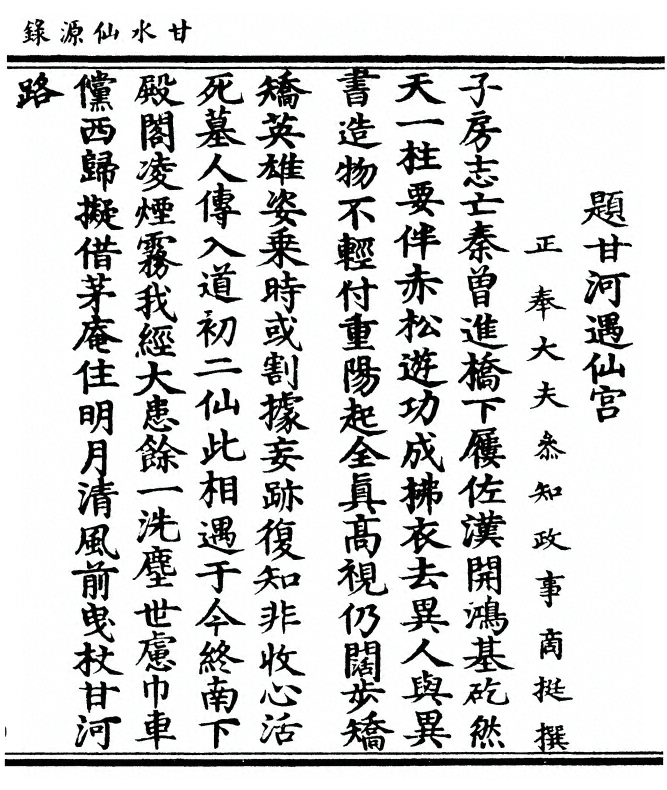 甘水仙源錄
題甘河遇仙宮
正奉大夫叅知政事商挺撰
子房志亡秦曾進橋下屨佐漢開鴻基矻然
天一柱要伴赤松遊功成拂衣去異人與異
書造物不輕付重陽起全眞高視仍闊步矯
矯英雄姿乘時或割據妄跡復知非收心活
死墓人傳入道初二仙此相遇于今終南下
殿閣凌煙霧我經大患餘一洗塵世慮巾車
儻西歸擬借茅庵住明月清風前曳杖甘河
路